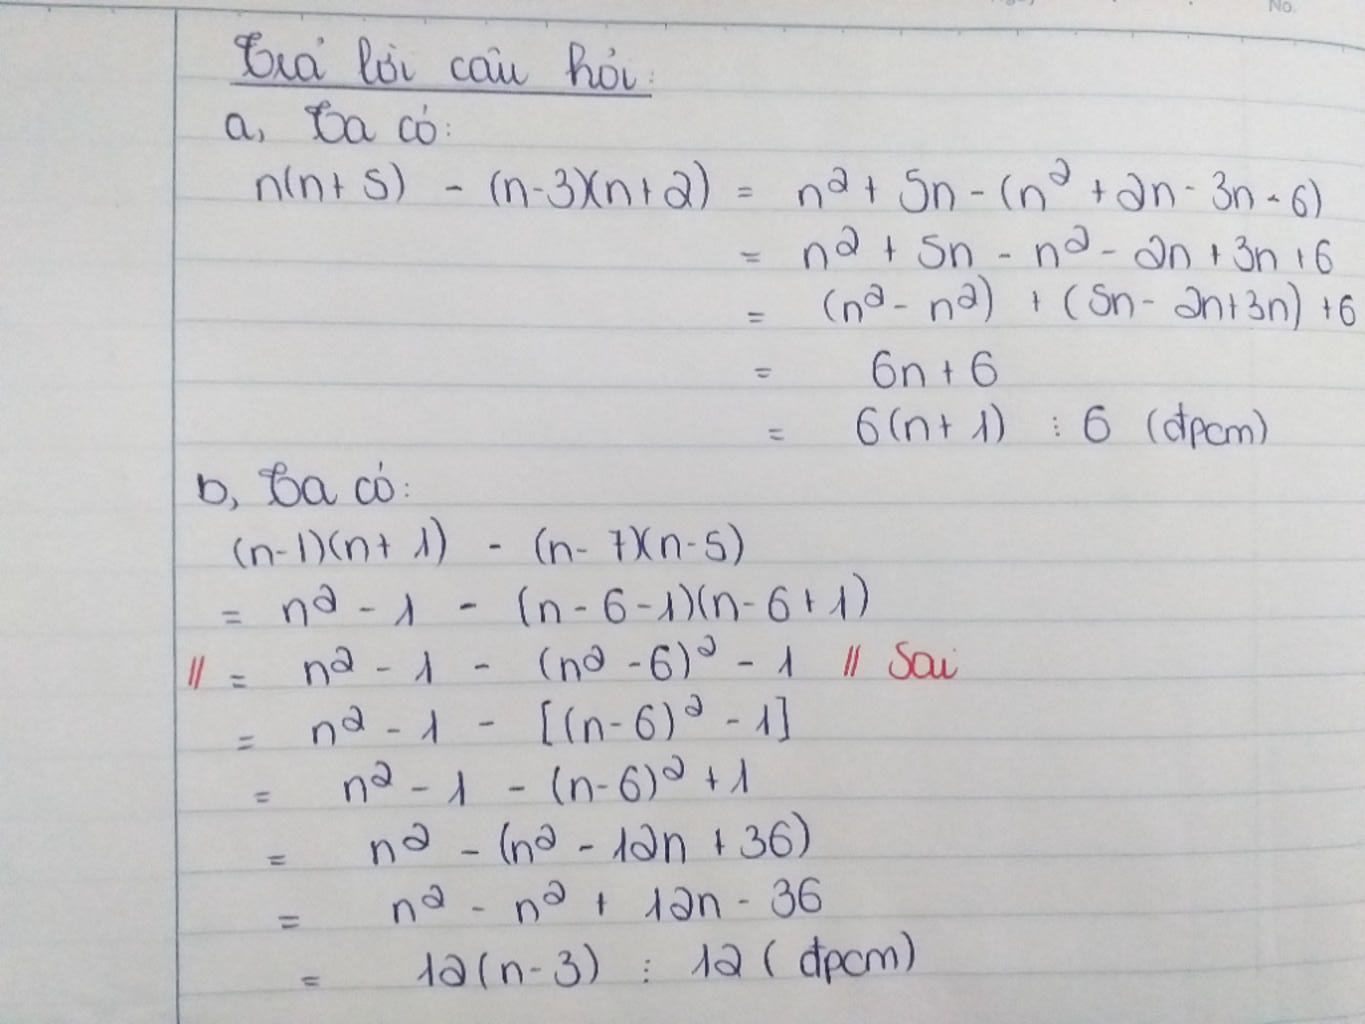 No.
Trả lời câu hỏi:
a, Ta có:
n(n+5) - (n-3)(n+2) = n² + 5n - (n² + 2n - 3n - 6)
= n² + 5n - n² - 2n + 3n + 6
= (n² - n²) + (5n - 2n + 3n) + 6
= 6n + 6
= 6(n+1) ⋮ 6 (đpcm)
b, Ta có:
(n-1)(n+1) - (n-7)(n-5)
= n² - 1 - (n-6-1)(n-6+1)
// = n² - 1 - (n² - 6)² - 1 // Sai
= n² - 1 - [(n-6)² - 1]
= n² - 1 - (n-6)² + 1
= n² - (n² - 12n + 36)
= n² - n² + 12n - 36
= 12(n-3) ⋮ 12 (đpcm)